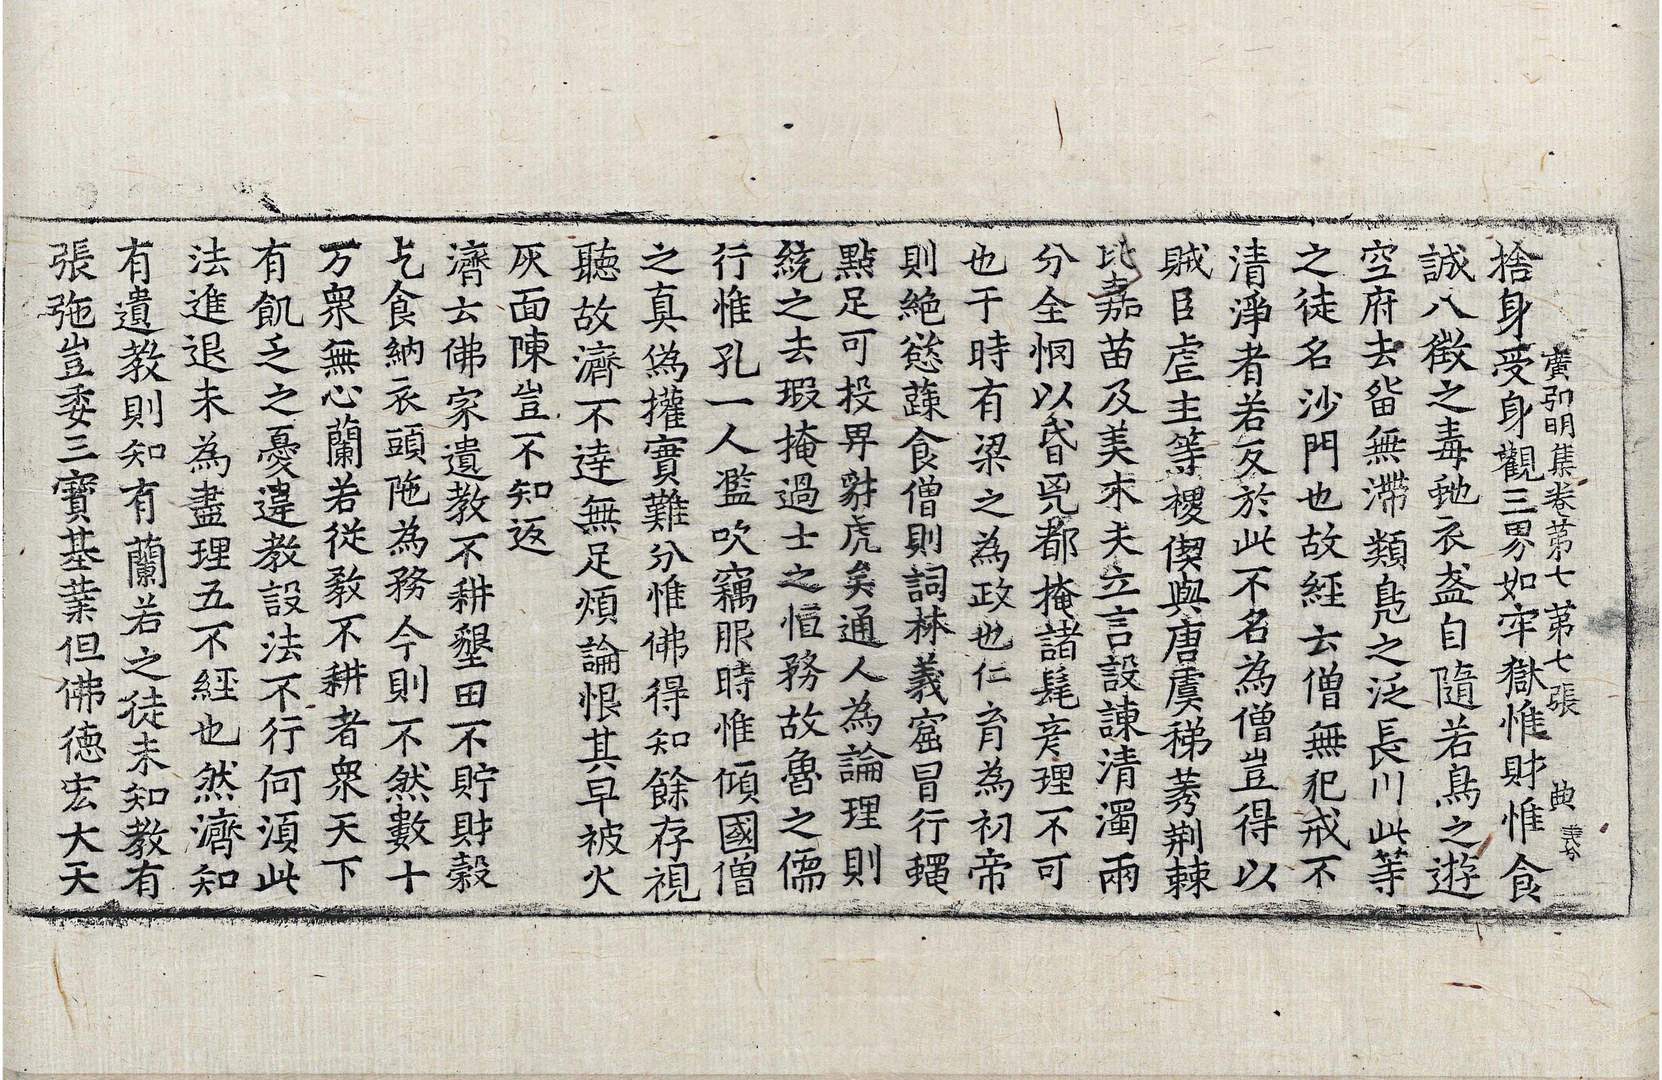 廣弘明集卷第七 第七張 典
捨身受身觀三界如牢獄惟財惟食
誠八微之毒虵衣盔自隨若鳥之遊
空府去畱無滯類鳧之泛長川此等
之徒名沙門也故經云僧無犯戒不
清淨者若反於此不名為僧豈得以
賊臣虐主等稷偰與唐虞稊莠荆棘
比嘉苗及美木夫立言設諫清濁兩
分全惘以昏兇都掩諸髦彦理不可
也于時有梁之為政也仁育為初帝
則絶慈蔬食僧則詞林義窟冒行蠅
點足可投畀豺虎矣通人為論理則
統之去瑕掩過士之恒務故魯之儒
行惟孔一人濫吹竊服時惟傾國僧
之真偽權實難分惟佛得知餘存視
聽故濟不達無足煩論恨其早被火
灰面陳豈不知返
濟云佛家遺教不耕墾田不貯財穀
乞食納衣頭陁為務今則不然數十
万衆無心蘭若從教不耕者衆天下
有飢乏之憂違教設法不行何須此
法進退未為盡理五不經也然濟知
有遺教則知有蘭若之徒未知教有
張弛豈委三寶基業但佛德宏大天